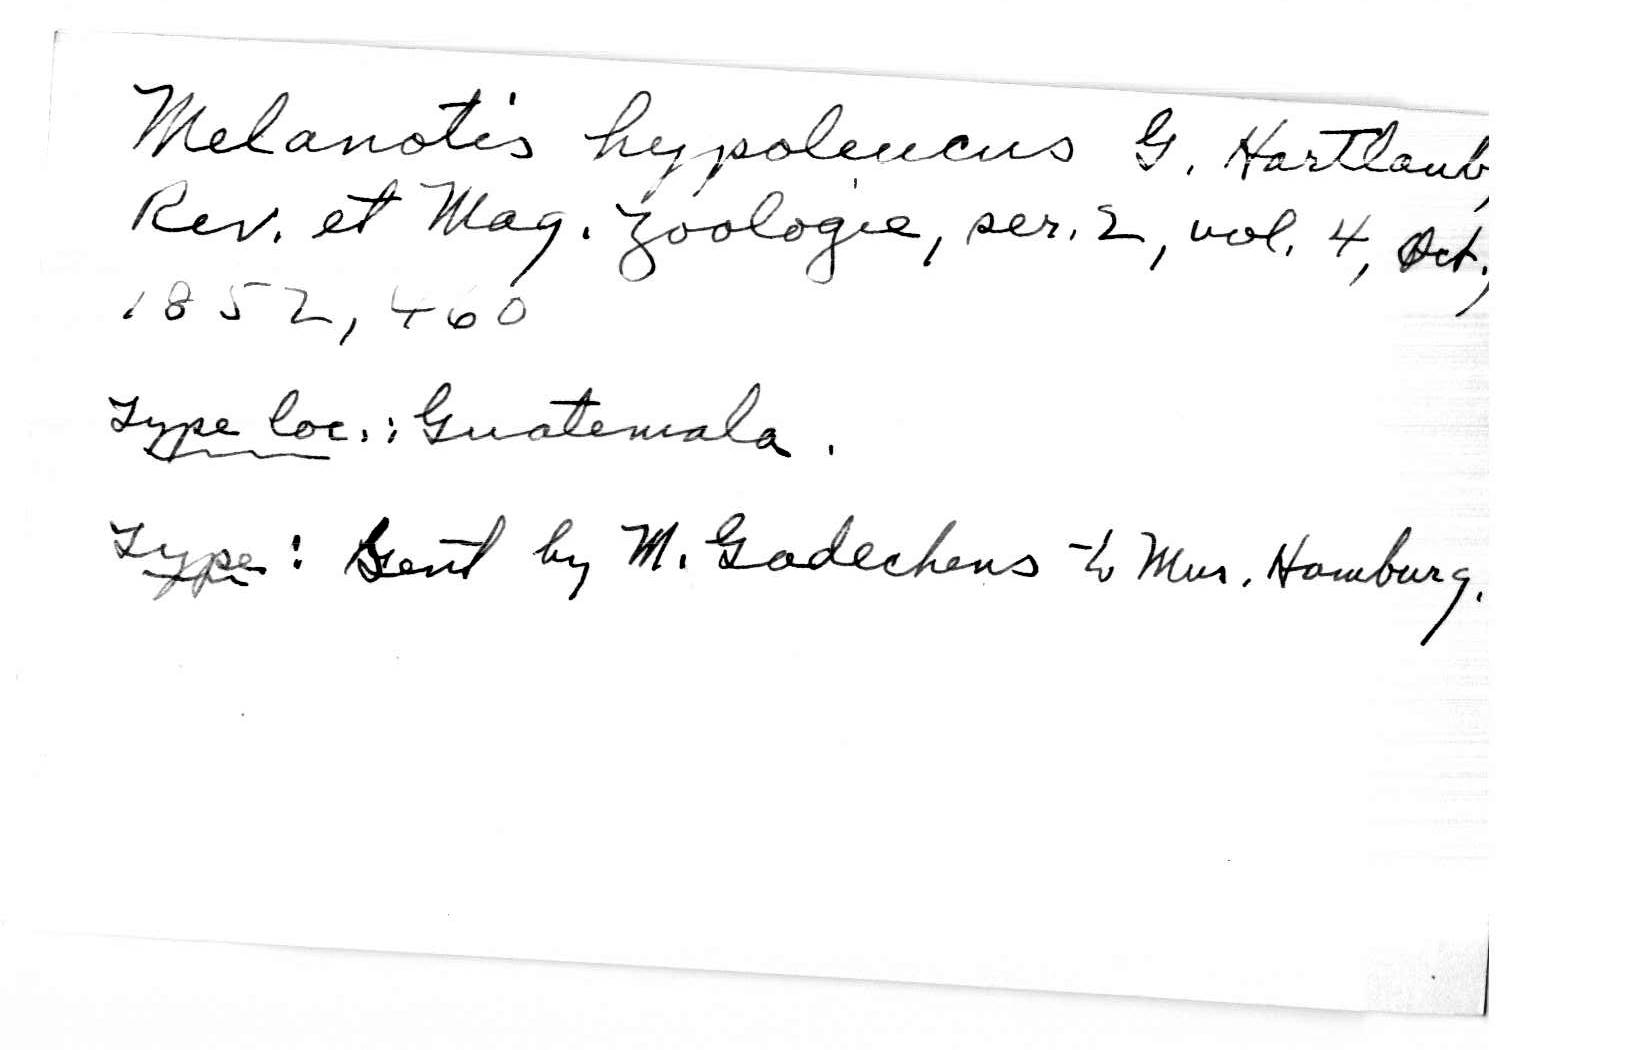 Melanotis hypoleucus G. Hartlaub,
Rev. et Mag. Zoologie, ser. 2, vol. 4, Oct.,
1852, 460
Type loc.: Guatemala.
Type: Sent by M. Godechens to Mus. Hamburg.